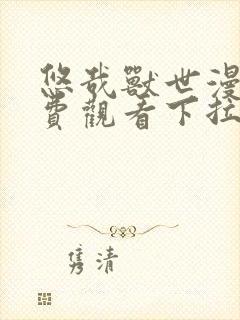 悠哉獸世漫
費觀看下拉
隽清